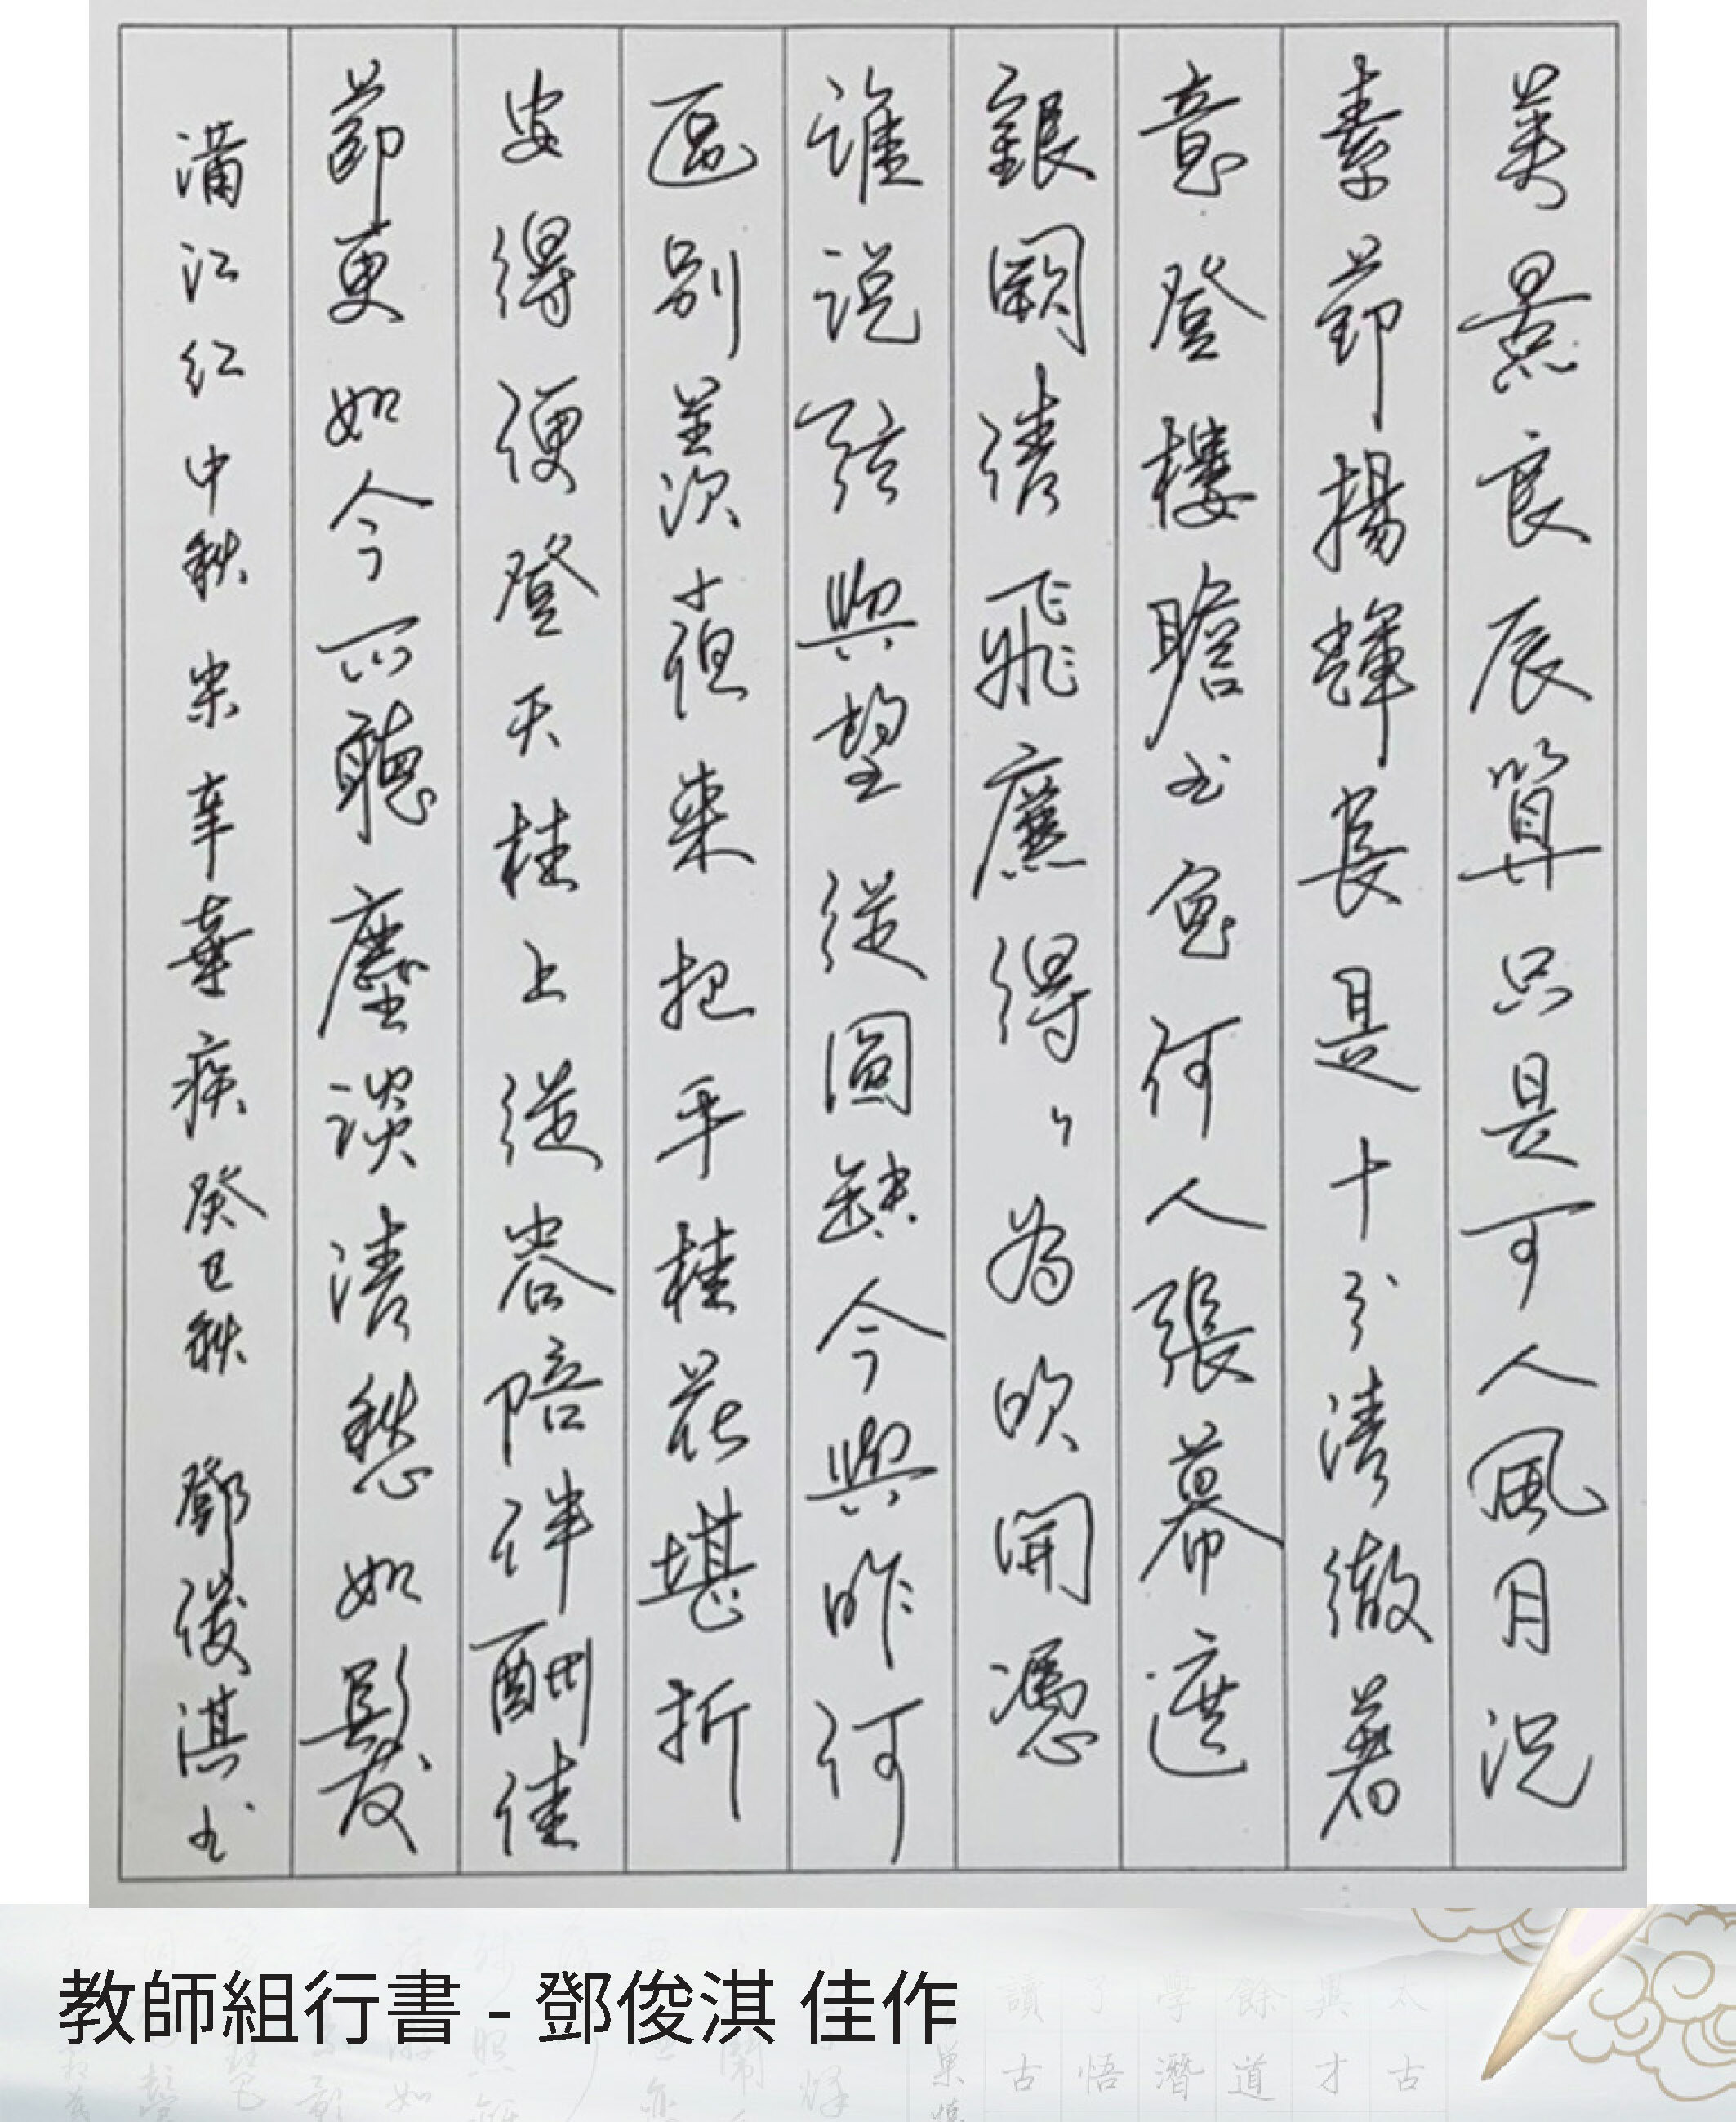 美景良辰算只是可人風月況
素節揚輝長是十分清徹著
意登樓瞻玉兔何人張幕遮
銀闕倩飛廉得々為吹開憑
誰說弦與望從圓缺今與昨何
區別羨夜來把手桂花堪折
安得便登天柱上從容陪伴酬佳
節更如今不聽麈談清愁如髮
滿江红 中秋 宋 辛棄疾 癸巳秋 鄧俊淇書
教師組行書 - 鄧俊淇 佳作